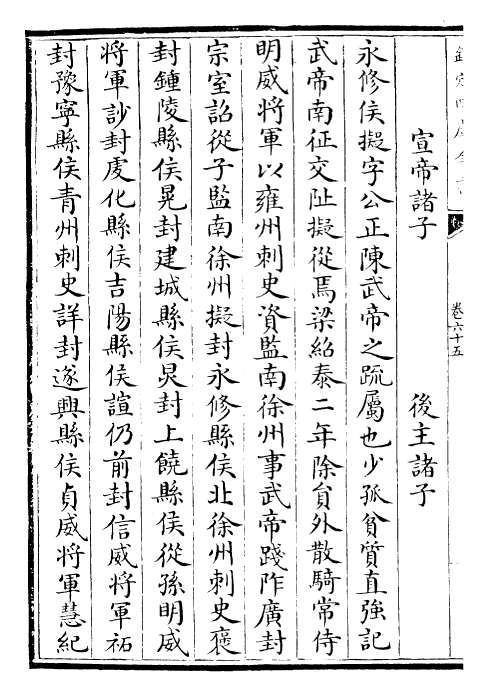 欽定四庫全書
卷六十五
宣帝諸子　後主諸子
永修侯擬字公正陳武帝之疏屬也少孤貧質直強記
武帝南征交阯擬從焉梁紹泰二年除貟外散騎常侍
明威將軍以雍州刺史資監南徐州事武帝踐阼廣封
宗室詔從子監南徐州擬封永修縣侯北徐州刺史襃
封鍾陵縣侯晃封建城縣侯炅封上饒縣侯從孫明威
將軍訬封䖍化縣侯吉陽縣侯諠仍前封信威將軍祏
封豫寧縣侯青州刺史詳封遂興縣侯貞威將軍慧紀